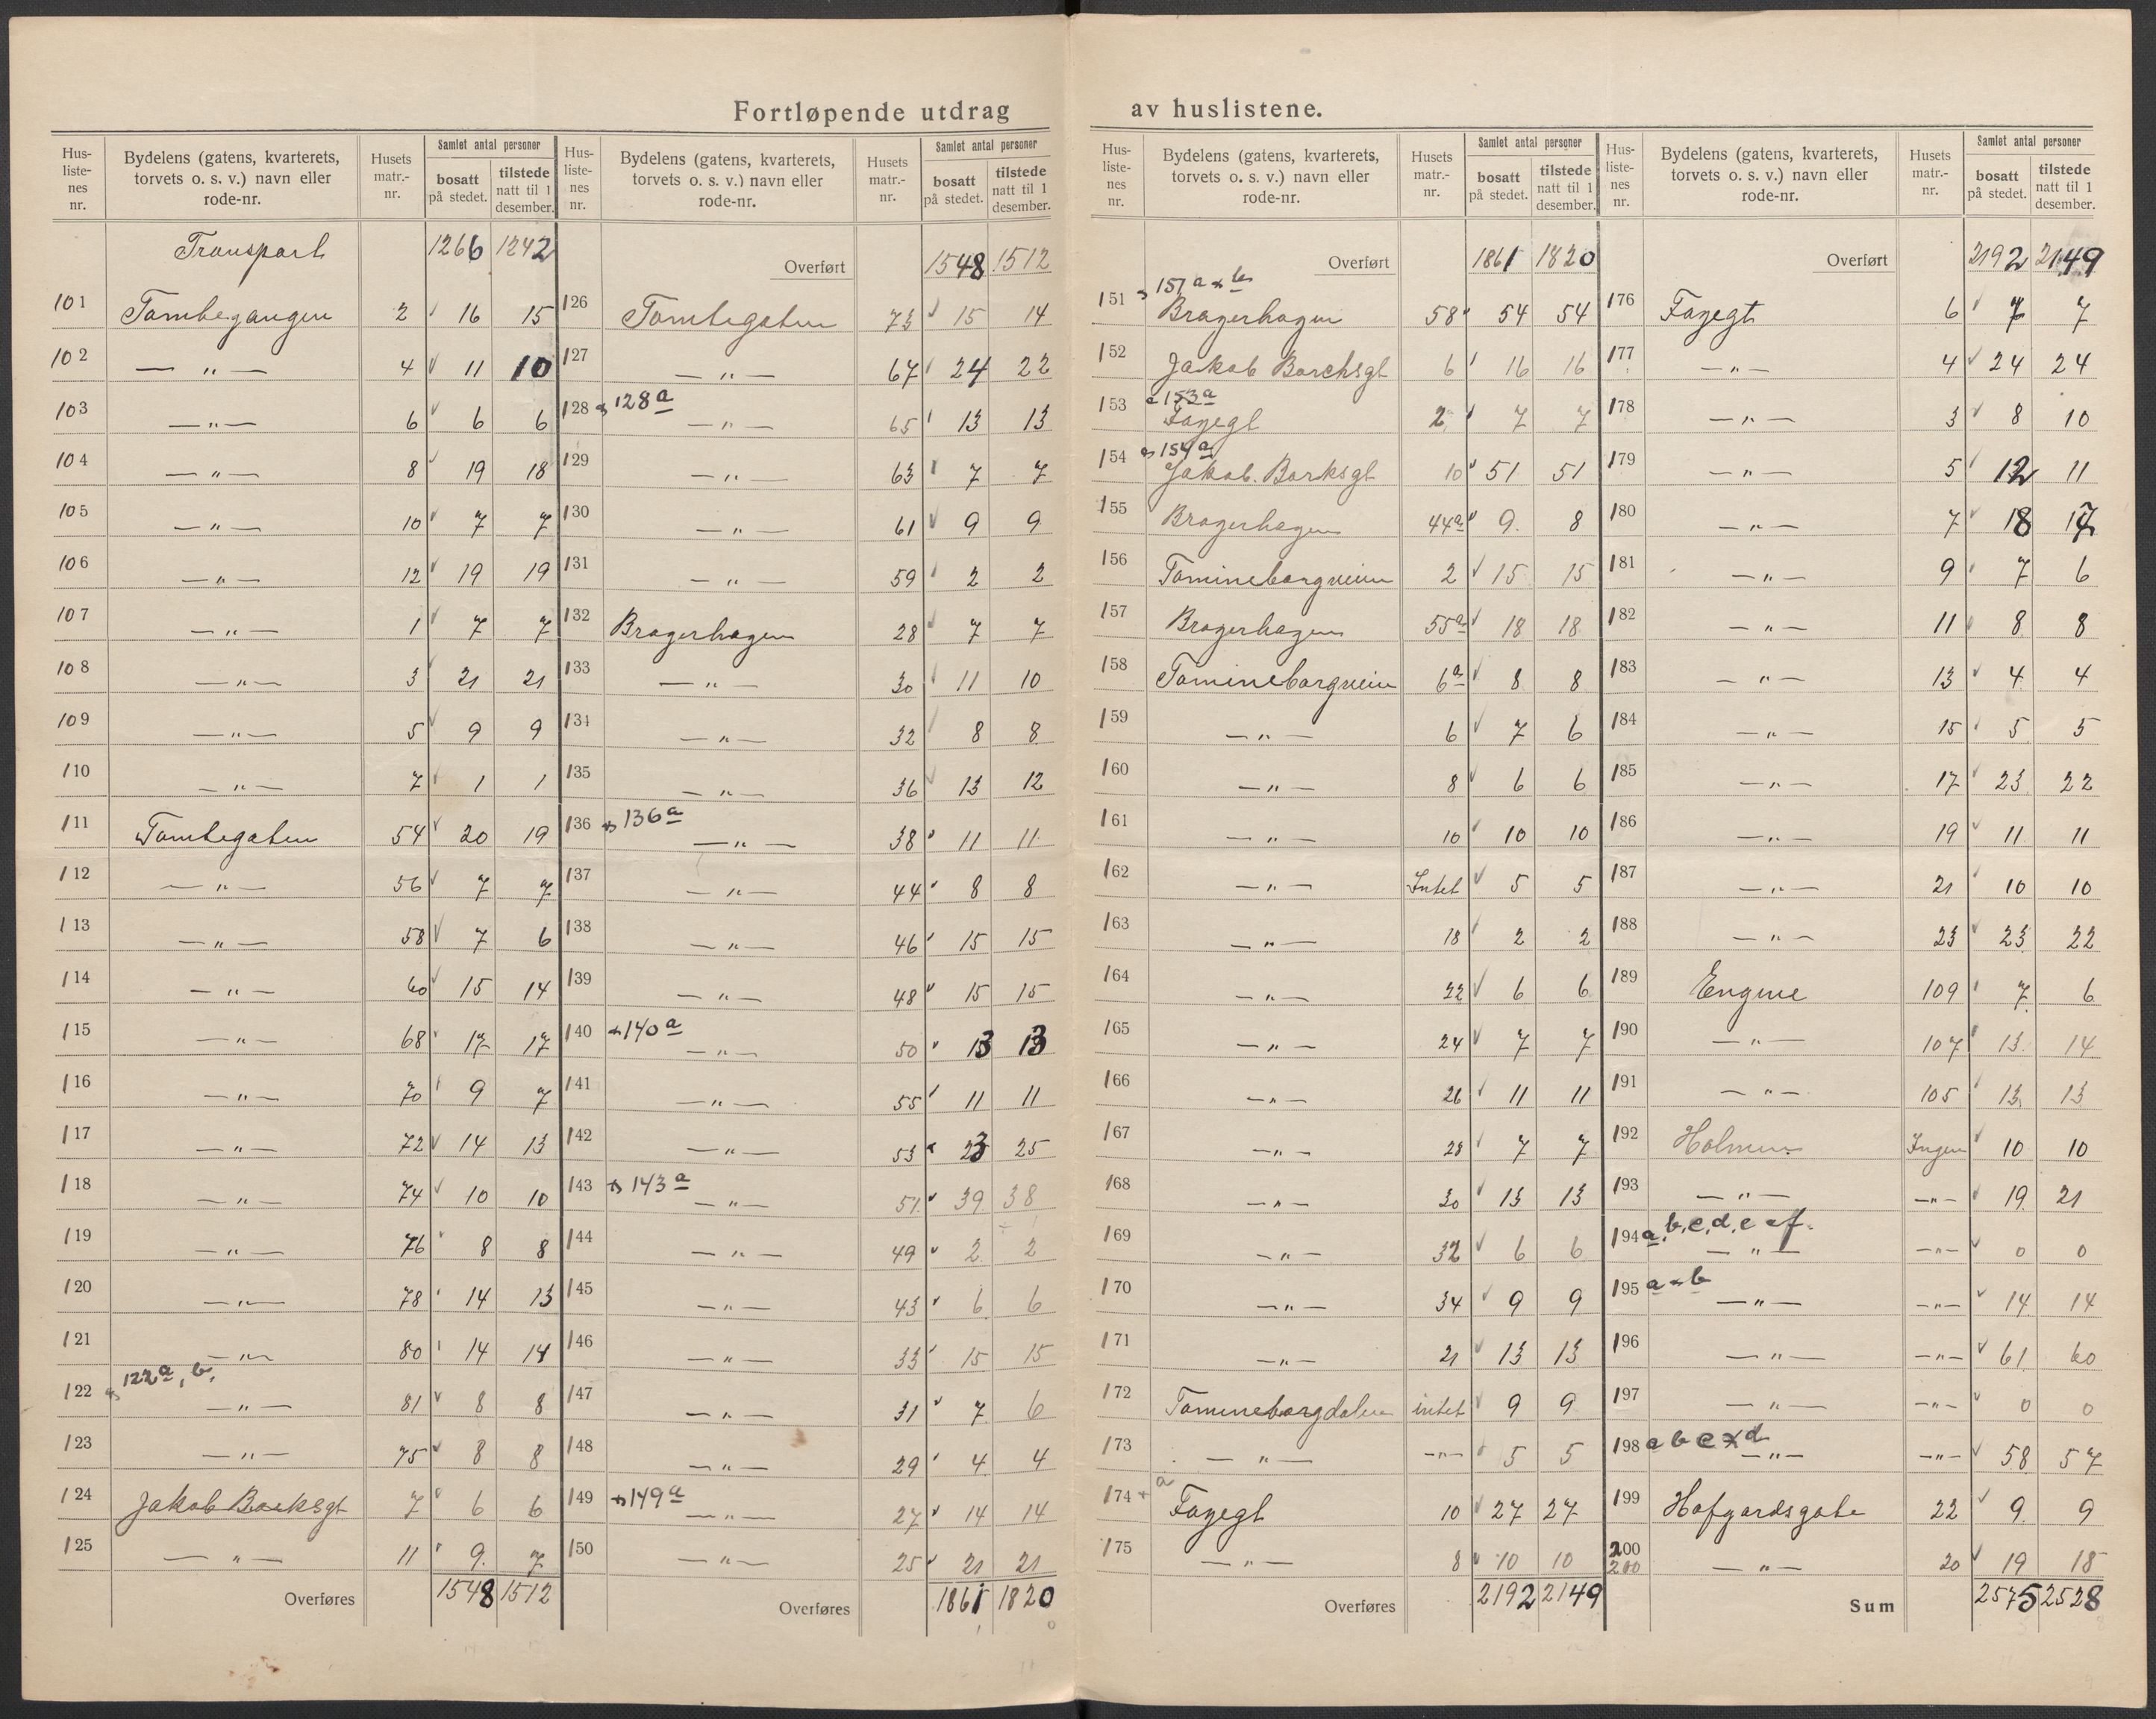 Fortløpende utdrag av huslistene.
Hus-listenes nr. | Bydelens (gatens, kvarterets, torvets o. s. v.) navn eller rode-nr. | Husets matr.-nr. | Samlet antal personer bosatt på stedet. | tilstede natt til 1 desember.
Transport 1266 1242
101 Tombegangen 2 16 15
102 — " — 4 11 10
103 — " — 6 6 6
104 — " — 8 19 18
105 — " — 10 7 7
106 — " — 12 19 19
107 — " — 1 7 7
108 — " — 3 21 21
109 — " — 5 9 9
110 — " — 7 1 1
111 Tombegaten 54 20 19
112 — " — 56 7 7
113 — " — 58 7 6
114 — " — 60 15 14
115 — " — 68 17 17
116 — " — 70 9 7
117 — " — 72 14 13
118 — " — 74 10 10
119 — " — 76 8 8
120 — " — 78 14 13
121 — " — 80 14 14
122 122a, b. — " — 81 8 8
123 — " — 75 8 8
124 Jakob Borksgt 7 6 6
125 — " — 11 9 7
Overføres 1548 1512
Hus-listenes nr. | Bydelens (gatens, kvarterets, torvets o. s. v.) navn eller rode-nr. | Husets matr.-nr. | Samlet antal personer bosatt på stedet. | tilstede natt til 1 desember.
Overført 1548 1512
126 Tombegaten 73 15 14
127 — " — 67 24 22
128 128a — " — 65 13 13
129 — " — 63 7 7
130 — " — 61 9 9
131 — " — 59 2 2
132 Bragerhagen 28 7 7
133 — " — 30 11 10
134 — " — 32 8 8
135 — " — 36 13 12
136 136a — " — 38 11 11
137 — " — 44 8 8
138 — " — 46 15 15
139 — " — 48 15 15
140 140a — " — 50 13 13
141 — " — 55 11 11
142 — " — 53 23 25
143 143a — " — 51 39 38
144 — " — 49 2 2
145 — " — 43 6 6
146 — " — 33 15 15
147 — " — 31 7 6
148 — " — 29 4 4
149 149a — " — 27 14 14
150 — " — 25 21 21
Overføres 1861 1820
Hus-listenes nr. | Bydelens (gatens, kvarterets, torvets o. s. v.) navn eller rode-nr. | Husets matr.-nr. | Samlet antal personer bosatt på stedet. | tilstede natt til 1 desember.
Overført 1861 1820
151 151 a + b Bragerhagen 58 54 54
152 Jakob Borchsgt 6 16 16
153 153a Fayegt 2 7 7
154 154a Jakob. Borksgt 10 51 51
155 Bragerhagen 44a 9 8
156 Tomineborgveien 2 15 15
157 Bragerhagen 55a 18 18
158 Tomineborgveien 6a 8 8
159 — " — 6 7 6
160 — " — 8 6 6
161 — " — 10 10 10
162 — " — Intet 5 5
163 — " — 18 2 2
164 — " — 22 6 6
165 — " — 24 7 7
166 — " — 26 11 11
167 — " — 28 7 7
168 — " — 30 13 13
169 — " — 32 6 6
170 — " — 34 9 9
171 — " — 21 13 13
172 Tomineborgdalen intet 9 9
173 — " — — " — 5 5
174 + a Fayegt 10 27 27
175 — " — 8 10 10
Overføres 2192 2149
Hus-listenes nr. | Bydelens (gatens, kvarterets, torvets o. s. v.) navn eller rode-nr. | Husets matr.-nr. | Samlet antal personer bosatt på stedet. | tilstede natt til 1 desember.
Overført 2192 2149
176 Fayegt 6 7 7
177 — " — 4 24 24
178 — " — 3 8 10
179 — " — 5 12 11
180 — " — 7 18 17
181 — " — 9 7 6
182 — " — 11 8 8
183 — " — 13 4 4
184 — " — 15 5 5
185 — " — 17 23 22
186 — " — 19 11 11
187 — " — 21 10 10
188 — " — 23 23 22
189 Engene 109 7 6
190 — " — 107 13 14
191 — " — 105 13 13
192 Holmen Ingen 10 10
193 — " — — " — 19 21
194 a, b, c, d, e + f. — " — — " — 0 0
195 a + b — " — — " — 14 14
196 — " — — " — 61 60
197 — " — — " — 0 0
198 a b c + d — " — — " — 58 57
199 Hofgardsgate 22 9 9
200 200 — " — 20 19 18
Sum 2575 2528